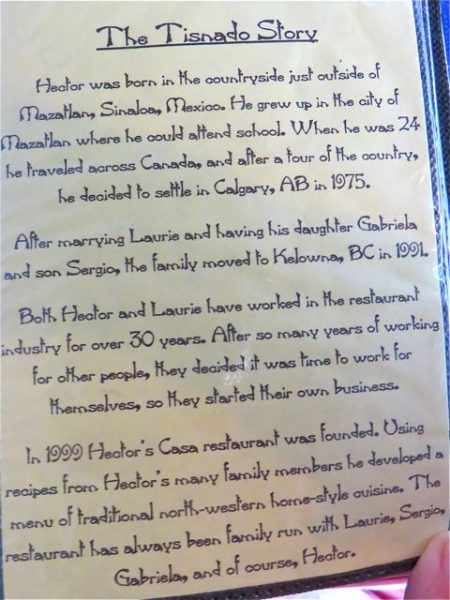 The Tisnado Story
Hector was born in the countryside just outside of
Mazatlan, Sinaloa, Mexico. He grew up in the city of
Mazatlan where he could attend school. When he was 24
he traveled across Canada, and after a tour of the country,
he decided to settle in Calgary, AB in 1975.
After marrying Laurie and having his daughter Gabriela
and son Sergio, the family moved to Kelowna, BC in 1991.
Both Hector and Laurie have worked in the restaurant
industry for over 30 years. After so many years of working
for other people, they decided it was time to work for
themselves, so they started their own business.
In 1999 Hector's Casa restaurant was founded. Using
recipes from Hector's many family members he developed a
menu of traditional north-western home-style cuisine. The
restaurant has always been family run with Laurie, Sergio,
Gabriela, and of course, Hector.